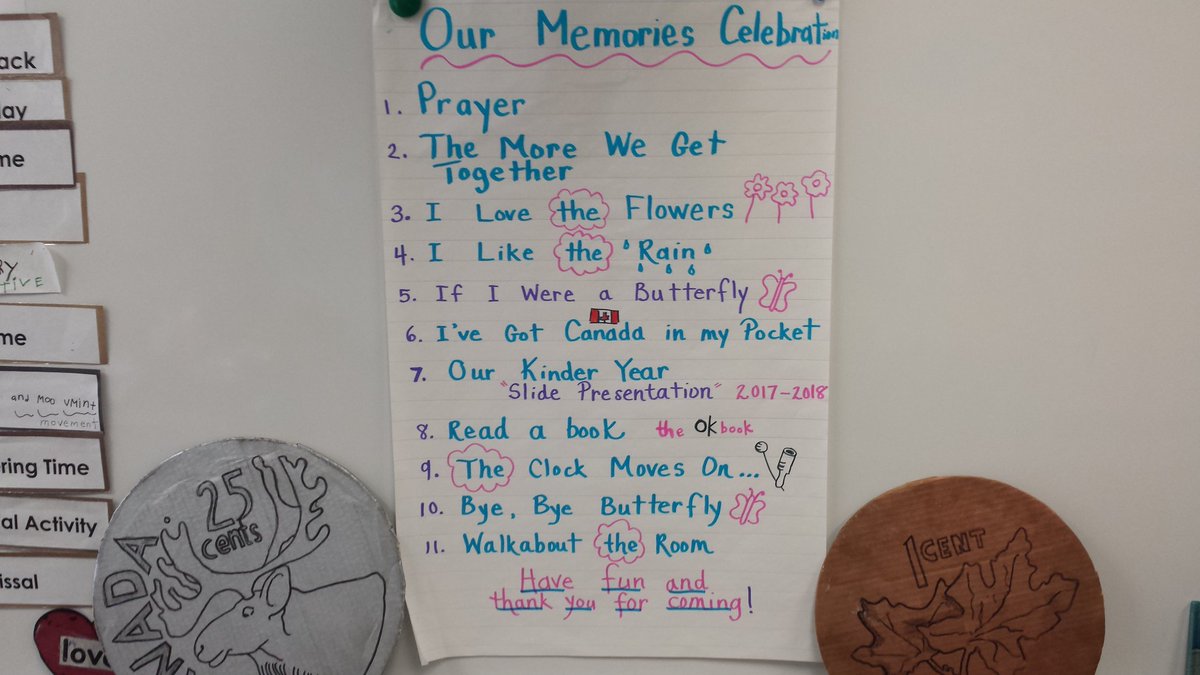 Our Memories Celebration
1. Prayer
2. The More We Get
Together
3. I Love the Flowers
4. I Like the Rain
5. If I Were a Butterfly
6. I've Got Canada in my Pocket
7. Our Kinder Year
"Slide Presentation" 2017-2018
8. Read a book the OK book
9. The Clock Moves On...
10. Bye, Bye Butterfly
11. Walkabout the Room
Have fun and
thank you for coming!
ack
ay
me
RY
TIVE
me
and Moo vMint
movement
ring Time
al Activity
issal
love
25
cents
NADA
1 CENT